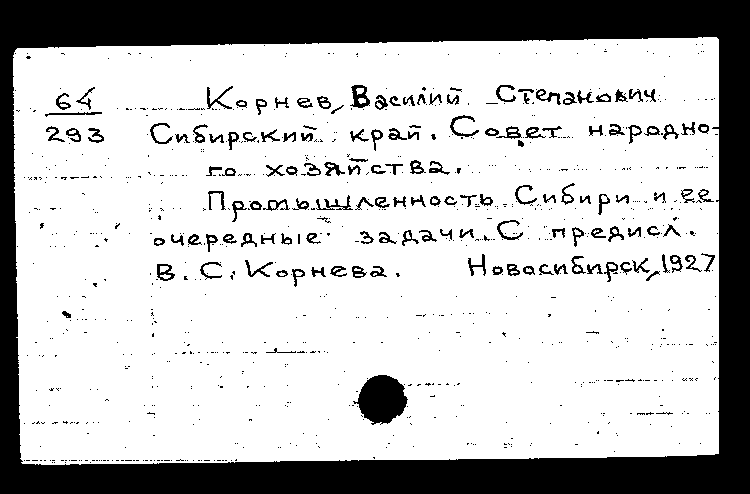 64 Корнев, Василий Степанович
293 Сибирский край. Совет народно-
го хозяйства.
Промышленность Сибири и ее
очередные задачи. С предисл.
В. С. Корнева. Новосибирск, 1927